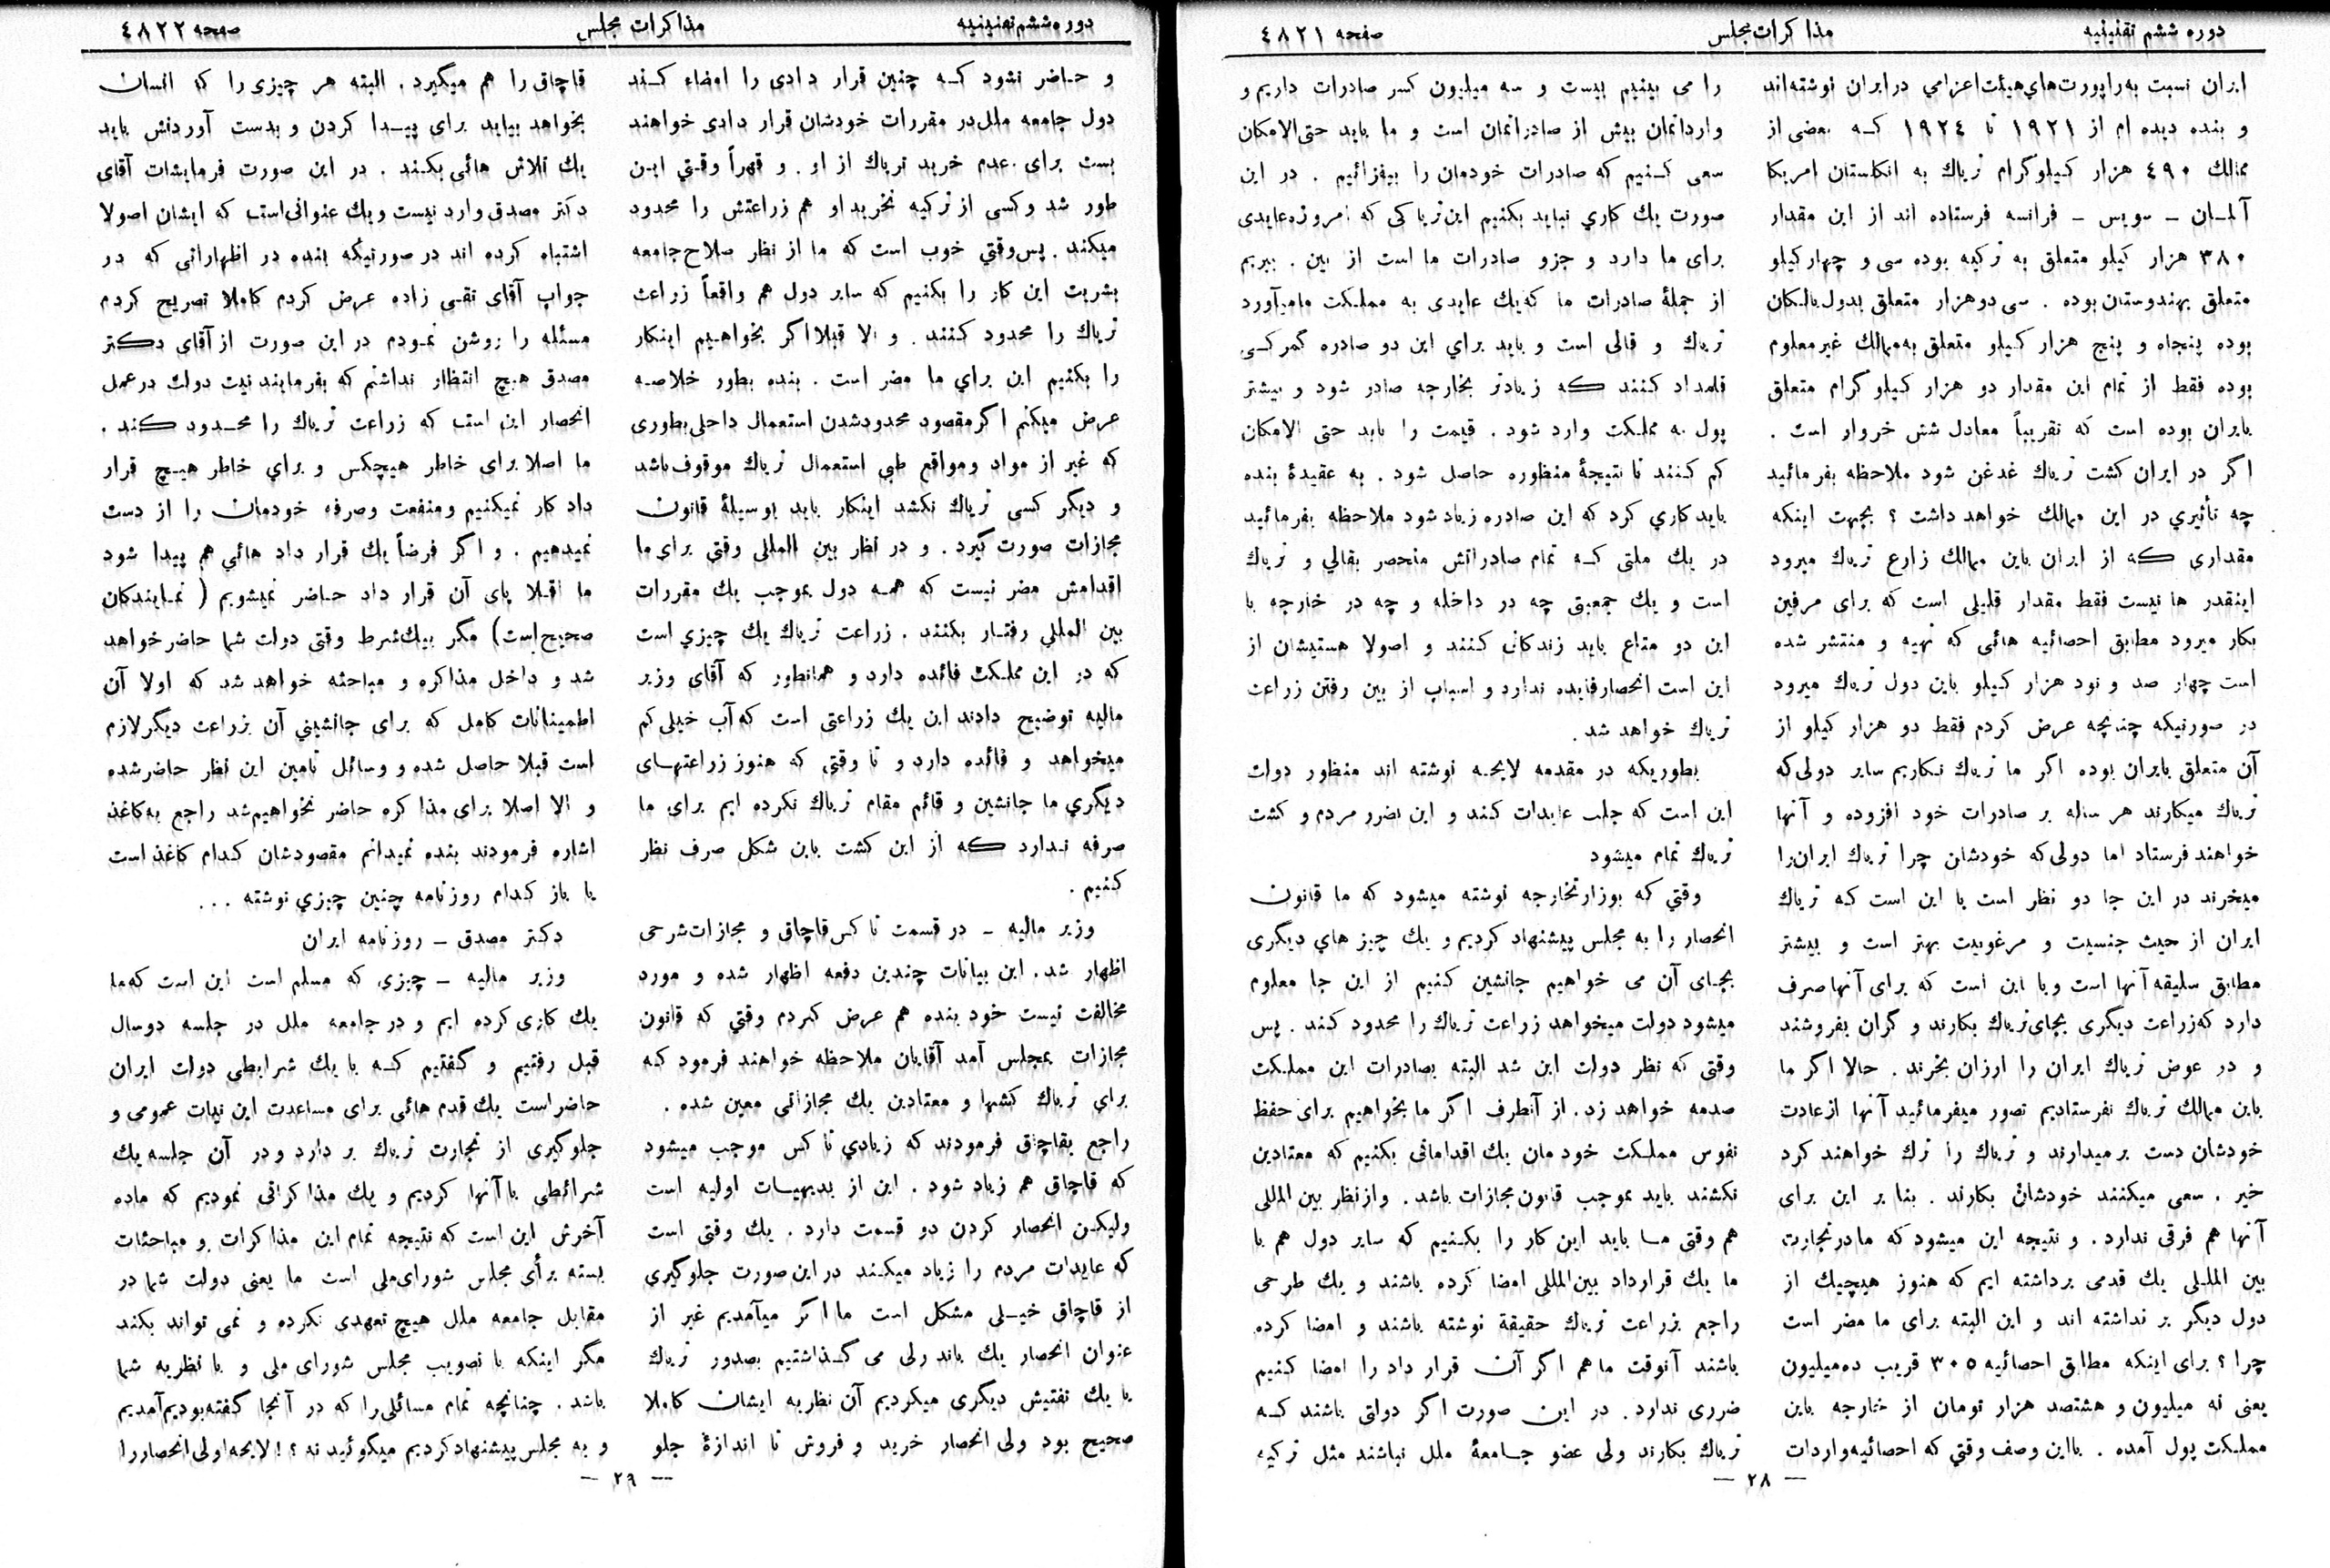 دوره ششم تقنینیه
مذاکرات مجلس
صفحه ٤٨٢١
ایران نسبت به راپورت‌های هیئت اعزامی در ایران نوشته‌اند
و بنده دیده ام از ١٩٢١ تا ١٩٢٤ که بعضی از
ممالك ٤٩٠ هزار کیلوگرام تریاك به انگلستان امریکا
آلمان ـ سویس ـ فرانسه فرستاده اند از این مقدار
٣٨٠ هزار کیلو متعلق به ترکیه بوده سی و چهار کیلو
متعلق بهندوستان بوده . سی دو هزار متعلق بدول بالکان
بوده پنجاه و پنج هزار کیلو متعلق به ممالك غیر معلوم
بوده فقط از تمام این مقدار دو هزار کیلو گرام متعلق
بایران بوده است که تقریباً معادل شش خروار است .
اگر در ایران کشت تریاك غدغن شود ملاحظه بفرمائید
چه تأثیری در این ممالك خواهد داشت ؟ بجهت اینکه
مقداری که از ایران باین ممالك زارع تریاك میرود
اینقدر ها نیست فقط مقدار قلیلی است که برای مرفین
بکار میرود مطابق احصائیه هائی که تهیه و منتشر شده
است چهار صد و نود هزار کیلو باین دول تریاك میرود
در صورتیکه چنانچه عرض کردم فقط دو هزار کیلو از
آن متعلق بایران بوده اگر ما تریاك نکاریم سایر دولی که
تریاك میکارند هر ساله بر صادرات خود افزوده و آنها
خواهند فرستاد اما دولی که خودشان چرا تریاك ایران را
میخرند در این جا دو نظر است یا این است که تریاك
ایران از حیث جنسیت و مرغوبیت بهتر است و بیشتر
مطابق سلیقه آنها است و یا این است که برای آنها صرف
دارد که زراعت دیگری بجای تریاك بکارند و گران بفروشند
و در عوض تریاك ایران را ارزان بخرند . حالا اگر ما
باین ممالك تریاك نفرستادیم تصور میفرمائید آنها از عادت
خودشان دست بر میدارند و تریاك را ترك خواهند کرد
خیر . سعی میکنند خودشان بکارند . بنا بر این برای
آنها هم فرقی ندارد . و نتیجه این میشود که ما در تجارت
بین المللی یك قدمی برداشته ایم که هنوز هیچیك از
دول دیگر بر نداشته اند و این البته برای ما مضر است
چرا ؟ برای اینکه مطابق احصائیه ٣٠٥ قریب ده میلیون
یعنی نه میلیون و هشتصد هزار تومان از خارجه باین
مملکت پول آمده . با این وصف وقتی که احصائیه واردات
را می بینیم بیست و سه میلیون کسر صادرات داریم و
وارداتمان بیش از صادراتمان است و ما باید حتی الامکان
سعی کنیم که صادرات خودمان را بیفزائیم . در این
صورت یك کاری نباید بکنیم این تریاکی که امروزه عایدی
برای ما دارد و جزو صادرات ما است از بین . ببریم
از جملهٔ صادرات ما که یك عایدی به مملکت ما میآورد
تریاك و قالی است و باید برای این دو صادره گمرکی
قلمداد کنند که زیادتر بخارجه صادر شود و بیشتر
پول به مملکت وارد شود . قیمت را باید حتی الامکان
کم کنند تا نتیجهٔ منظوره حاصل شود . به عقیدهٔ بنده
باید کاری کرد که این صادره زیاد شود ملاحظه بفرمائید
در یك ملتی که تمام صادراتش منحصر بقالی و تریاك
است و یك جمعیتی چه در داخله و چه در خارجه با
این دو متاع باید زندگانی کنند و اصولا هستیشان از
این است انحصار فایده ندارد و اسباب از بین رفتن زراعت
تریاك خواهد شد .
بطوریکه در مقدمه لایحه نوشته اند منظور دولت
این است که جلب عایدات کند و این بضرر مردم و کشت
تریاك تمام میشود
وقتی که بوزارتخارجه نوشته میشود که ما قانون
انحصار را به مجلس پیشنهاد کردیم و یك چیز های دیگری
بجای آن می خواهیم جانشین کنیم از این جا معلوم
میشود دولت میخواهد زراعت تریاك را محدود کند . پس
وقتی که نظر دولت این شد البته بصادرات این مملکت
صدمه خواهد زد . از آنطرف اگر ما بخواهیم برای حفظ
نفوس مملکت خودمان یك اقداماتی بکنیم که معتادین
نکشند باید بموجب قانون مجازات باشد . و از نظر بین المللی
هم وقتی ما باید این کار را بکنیم که سایر دول هم با
ما یك قرارداد بین المللی امضا کرده باشند و یك طرحی
راجع بزراعت تریاك حقیقة نوشته باشند و امضا کرده
باشند آنوقت ما هم اگر آن قرار داد را امضا کنیم
ضرری ندارد . در این صورت اگر دولتی باشند که
تریاك بکارند ولی عضو جامعهٔ ملل نباشند مثل ترکیه
— ٢٨ —
دوره ششم تقنینیه
مذاکرات مجلس
صفحه ٤٨٢٢
و حاضر نشود که چنین قرار دادی را امضاء کند
دول جامعه ملل در مقررات خودشان قرار دادی خواهند
بست برای عدم خرید تریاك از او . و قهراً وقتی این
طور شد و کسی از ترکیه نخرید او هم زراعتش را محدود
میکند . پس وقتی خوب است که ما از نظر صلاح جامعه
بشریت این کار را بکنیم که سایر دول هم واقعاً زراعت
تریاك را محدود کنند . و الا قبلا اگر بخواهیم اینکار
را بکنیم این برای ما مضر است . بنده بطور خلاصه
عرض میکنم اگر مقصود محدود شدن استعمال داخلی بطوری
که غیر از مواد و مواقع طبی استعمال تریاك موقوف باشد
و دیگر کسی تریاك نکشد اینکار باید بوسیلهٔ قانون
مجازات صورت گیرد . و در نظر بین المللی وقتی برای ما
اقدامش مضر نیست که همه دول بموجب یك مقررات
بین المللی رفتار بکنند . زراعت تریاك یك چیزی است
که در این مملکت فائده دارد و همانطور که آقای وزیر
مالیه توضیح دادند این یك زراعتی است که آب خیلی کم
میخواهد و فائده دارد و تا وقتی که هنوز زراعتهای
دیگری ما جانشین و قائم مقام تریاك نکرده ایم برای ما
صرفه ندارد که از این کشت باین شکل صرف نظر
کنیم .
وزیر مالیه ـ در قسمت تاکس قاچاق و مجازات شرحی
اظهار شد . این بیانات چندین دفعه اظهار شده و مورد
مخالفت نیست خود بنده هم عرض کردم وقتی که قانون
مجازات بمجلس آمد آقایان ملاحظه خواهند فرمود که
برای تریاك کشها و معتادین یك مجازاتی معین شده .
راجع بقاچاق فرمودند که زیادی تاکس موجب میشود
که قاچاق هم زیاد شود . این از بدیهیات اولیه است
ولیکن انحصار کردن دو قسمت دارد . یك وقتی است
که عایدات مردم را زیاد میکند در این صورت جلوگیری
از قاچاق خیلی مشکل است ما اگر میآمدیم غیر از
عنوان انحصار یك باندرلی می گذاشتیم بصدور تریاك
یا یك تفتیش دیگری میکردیم آن نظریه ایشان کاملا
صحیح بود ولی انحصار خرید و فروش تا اندازهٔ جلو
قاچاق را هم میگیرد . البته هر چیزی را که انسان
بخواهد بیاید برای پیدا کردن و بدست آوردنش باید
یك تلاش هائی بکند . در این صورت فرمایشات آقای
دکتر مصدق وارد نیست و یك عنوانی است که ایشان اصولا
اشتباه کرده اند در صورتیکه بنده در اظهاراتی که در
جواب آقای تقی زاده عرض کردم کاملا تصریح کردم
مسئله را روشن نمودم در این صورت از آقای دکتر
مصدق هیچ انتظار نداشتم که بفرمایند نیت دولت در عمل
انحصار این است که زراعت تریاك را محدود کند .
ما اصلا برای خاطر هیچکس و برای خاطر هیچ قرار
داد کار نمیکنیم و منفعت و صرفه خودمان را از دست
نمیدهیم . و اگر فرضاً یك قرار داد هائی هم پیدا شود
ما اقلا پای آن قرار داد حاضر نمیشویم ( نمایندگان
صحیح است) مگر بیك شرط وقتی دولت شما حاضر خواهد
شد و داخل مذاکره و مباحثه خواهد شد که اولا آن
اطمینانات کامل که برای جانشینی آن زراعت دیگر لازم
است قبلا حاصل شده و وسائل تامین این نظر حاضر شده
و الا اصلا برای مذاکره حاضر نخواهیم شد راجع به کاغذ
اشاره فرمودند بنده نمیدانم مقصودشان کدام کاغذ است
یا باز کدام روزنامه چنین چیزی نوشته ...
دکتر مصدق ـ روزنامه ایران
وزیر مالیه ـ چیزی که مسلم است این است که ما
یك کاری کرده ایم و در جامعه ملل در جلسه دو سال
قبل رفتیم و گفتیم که با یك شرایطی دولت ایران
حاضر است یك قدم هائی برای مساعدت این نیات عمومی و
جلوگیری از تجارت تریاك بر دارد و در آن جلسه یك
شرائطی با آنها کردیم و یك مذاکراتی نمودیم که ماده
آخرش این است که نتیجه تمام این مذاکرات و مباحثات
بسته برأی مجلس شورای ملی است ما یعنی دولت شما در
مقابل جامعه ملل هیچ تعهدی نکرده و نمی تواند بکند
مگر اینکه با تصویب مجلس شورای ملی و با نظریه شما
باشد . چنانچه تمام مسائلی را که در آنجا گفته بودیم آمدیم
و به مجلس پیشنهاد کردیم میگوئید نه ؟! لایحه اولی انحصار را
— ٢٩ —